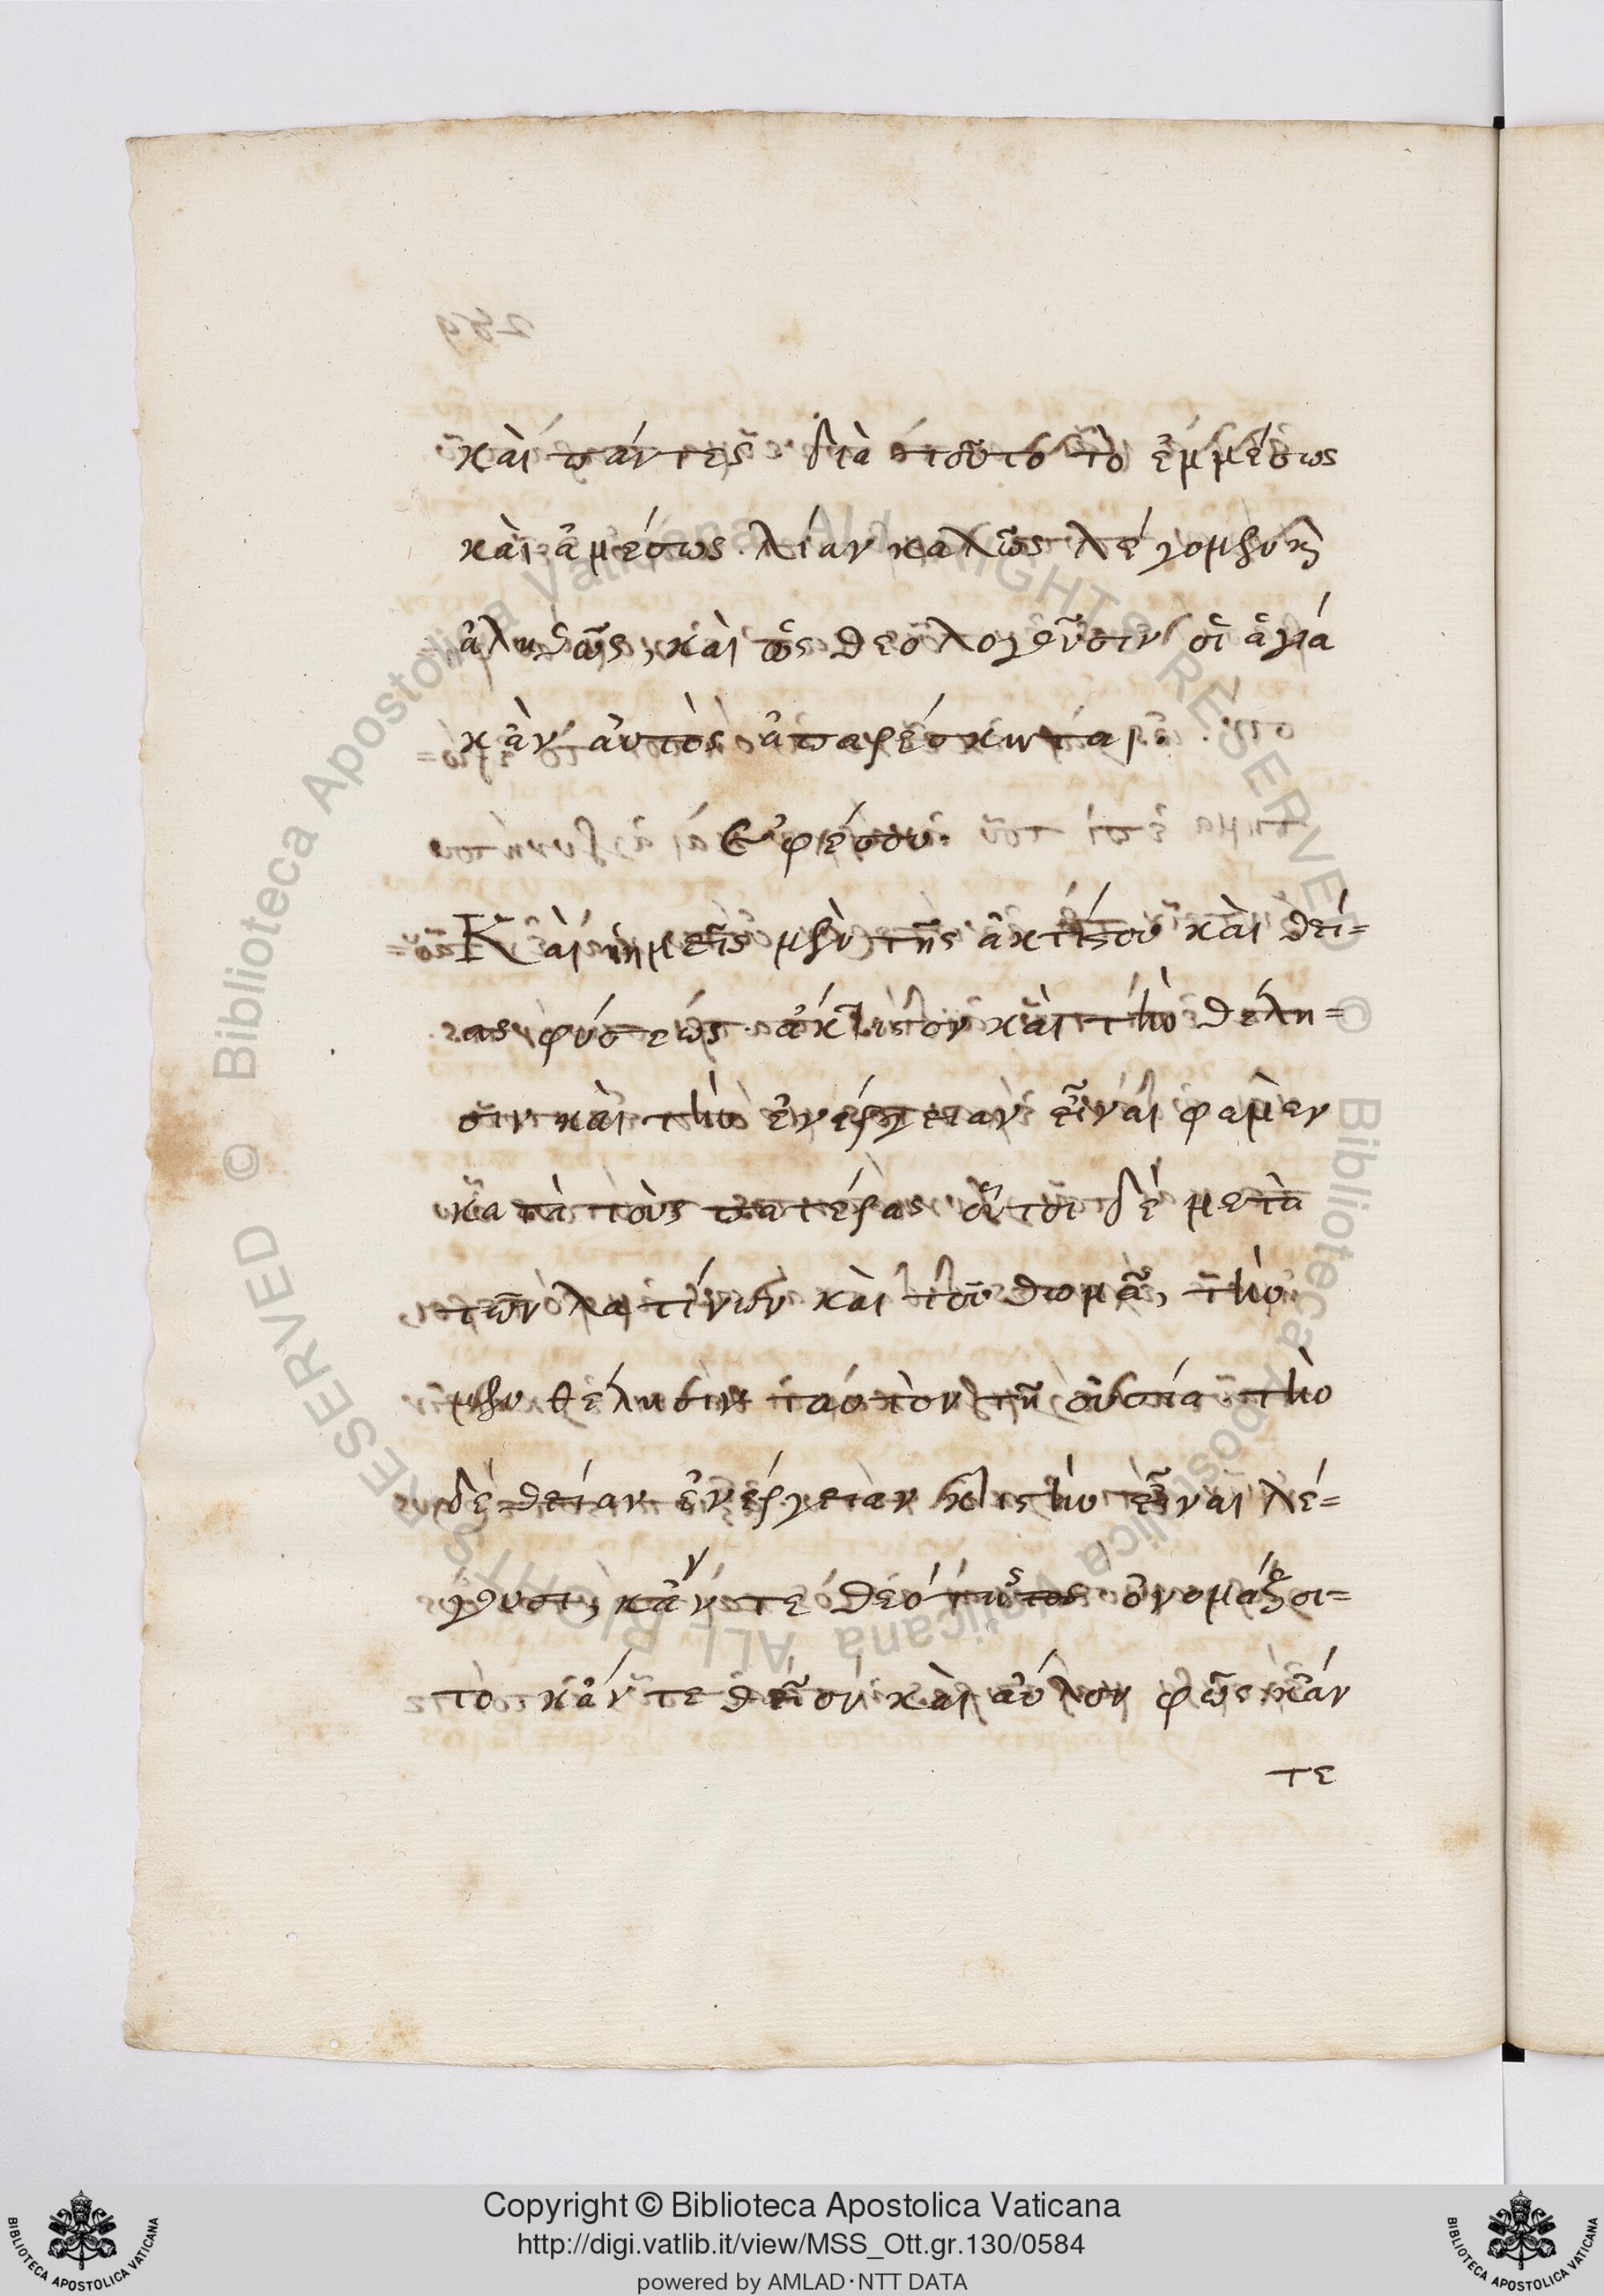 καὶ πάντες διὰ τοῦτο τὸ ἐμμέσως
καὶ ἀμέσως λίαν καλῶς λέγομεν κỳ
ἀληθῶς, καὶ ὡς θεολογοῦσιν οἱ ἅγιοι
κἂν αὐτὸς ἀπαρέσκηται.
Ἐφέσου.
Καὶ ἡμεῖς μὲν τῆς ἀκτίστου καὶ θεί=
ας φύσεως ἄκτιστον καὶ τὴν θέλη=
σιν καὶ τὴν ἐνέργειαν εἶναι φαμὲν
κατὰ τοὺς πατέρας οὗτοι δὲ μετὰ
τῶν λατίνων καὶ τοῦ θωμᾶ, τὴν
μὲν θέλησιν ταὐτὸν τῇ οὐσία τὴν
δὲ θείαν ἐνέργειαν κτιστὴν εἶναι λέ=
γουσι, κἄν τε θεότητος ὀνομάζοι=
το κἄν τε θεῖον καὶ ἄϋλον φῶς κἄν
τε
259
Copyright © Biblioteca Apostolica Vaticana
http://digi.vatlib.it/view/MSS_Ott.gr.130/0584
powered by AMLAD·NTT DATA
BIBLIOTECA APOSTOLICA VATICANA
BIBLIOTECA APOSTOLICA VATICANA
© Biblioteca Apostolica Vaticana ALL RIGHTS RESERVED
© Biblioteca Apostolica Vaticana ALL RIGHTS RESERVED